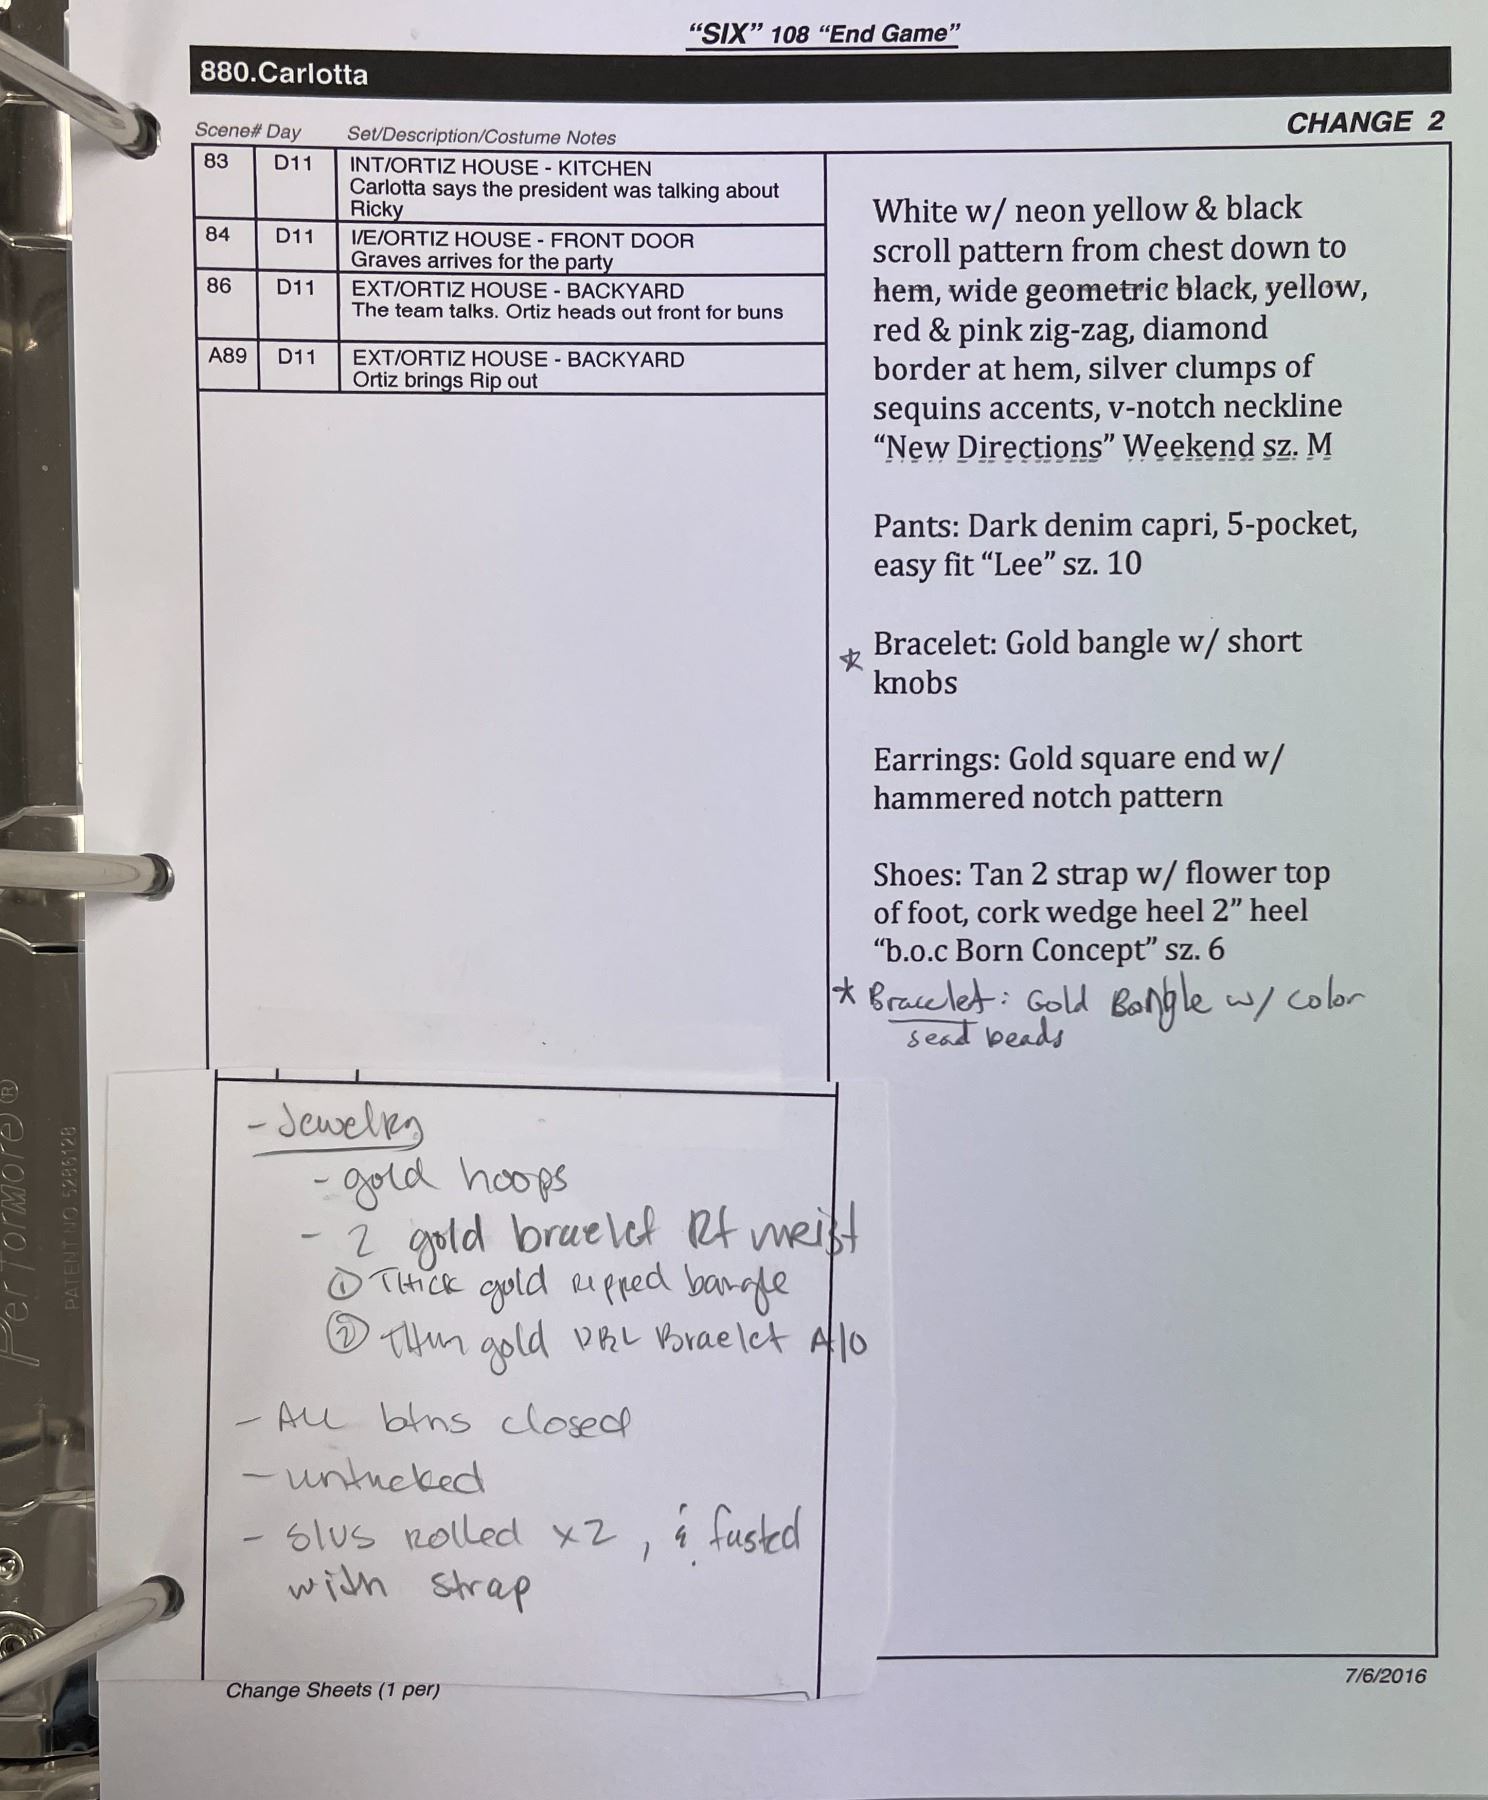 “SIX” 108 “End Game”
880.Carlotta
CHANGE 2
Scene# Day Set/Description/Costume Notes
83 D11 INT/ORTIZ HOUSE - KITCHEN
Carlotta says the president was talking about
Ricky
84 D11 I/E/ORTIZ HOUSE - FRONT DOOR
Graves arrives for the party
86 D11 EXT/ORTIZ HOUSE - BACKYARD
The team talks. Ortiz heads out front for buns
A89 D11 EXT/ORTIZ HOUSE - BACKYARD
Ortiz brings Rip out
White w/ neon yellow & black
scroll pattern from chest down to
hem, wide geometric black, yellow,
red & pink zig-zag, diamond
border at hem, silver clumps of
sequins accents, v-notch neckline
“New Directions” Weekend sz. M
Pants: Dark denim capri, 5-pocket,
easy fit “Lee” sz. 10
* Bracelet: Gold bangle w/ short
knobs
Earrings: Gold square end w/
hammered notch pattern
Shoes: Tan 2 strap w/ flower top
of foot, cork wedge heel 2” heel
“b.o.c Born Concept” sz. 6
* Bracelet: Gold Bangle w/ color
sead beads
- Jewelry
- gold hoops
- 2 gold braelet Rt wrist
① Thick gold ripped bangle
② Thin gold DBL Braelet A/O
- All btns closed
- untucked
- slvs rolled x2, & fastd
with strap
Change Sheets (1 per)
7/6/2016
PerFormore®
PATENT NO 5286128